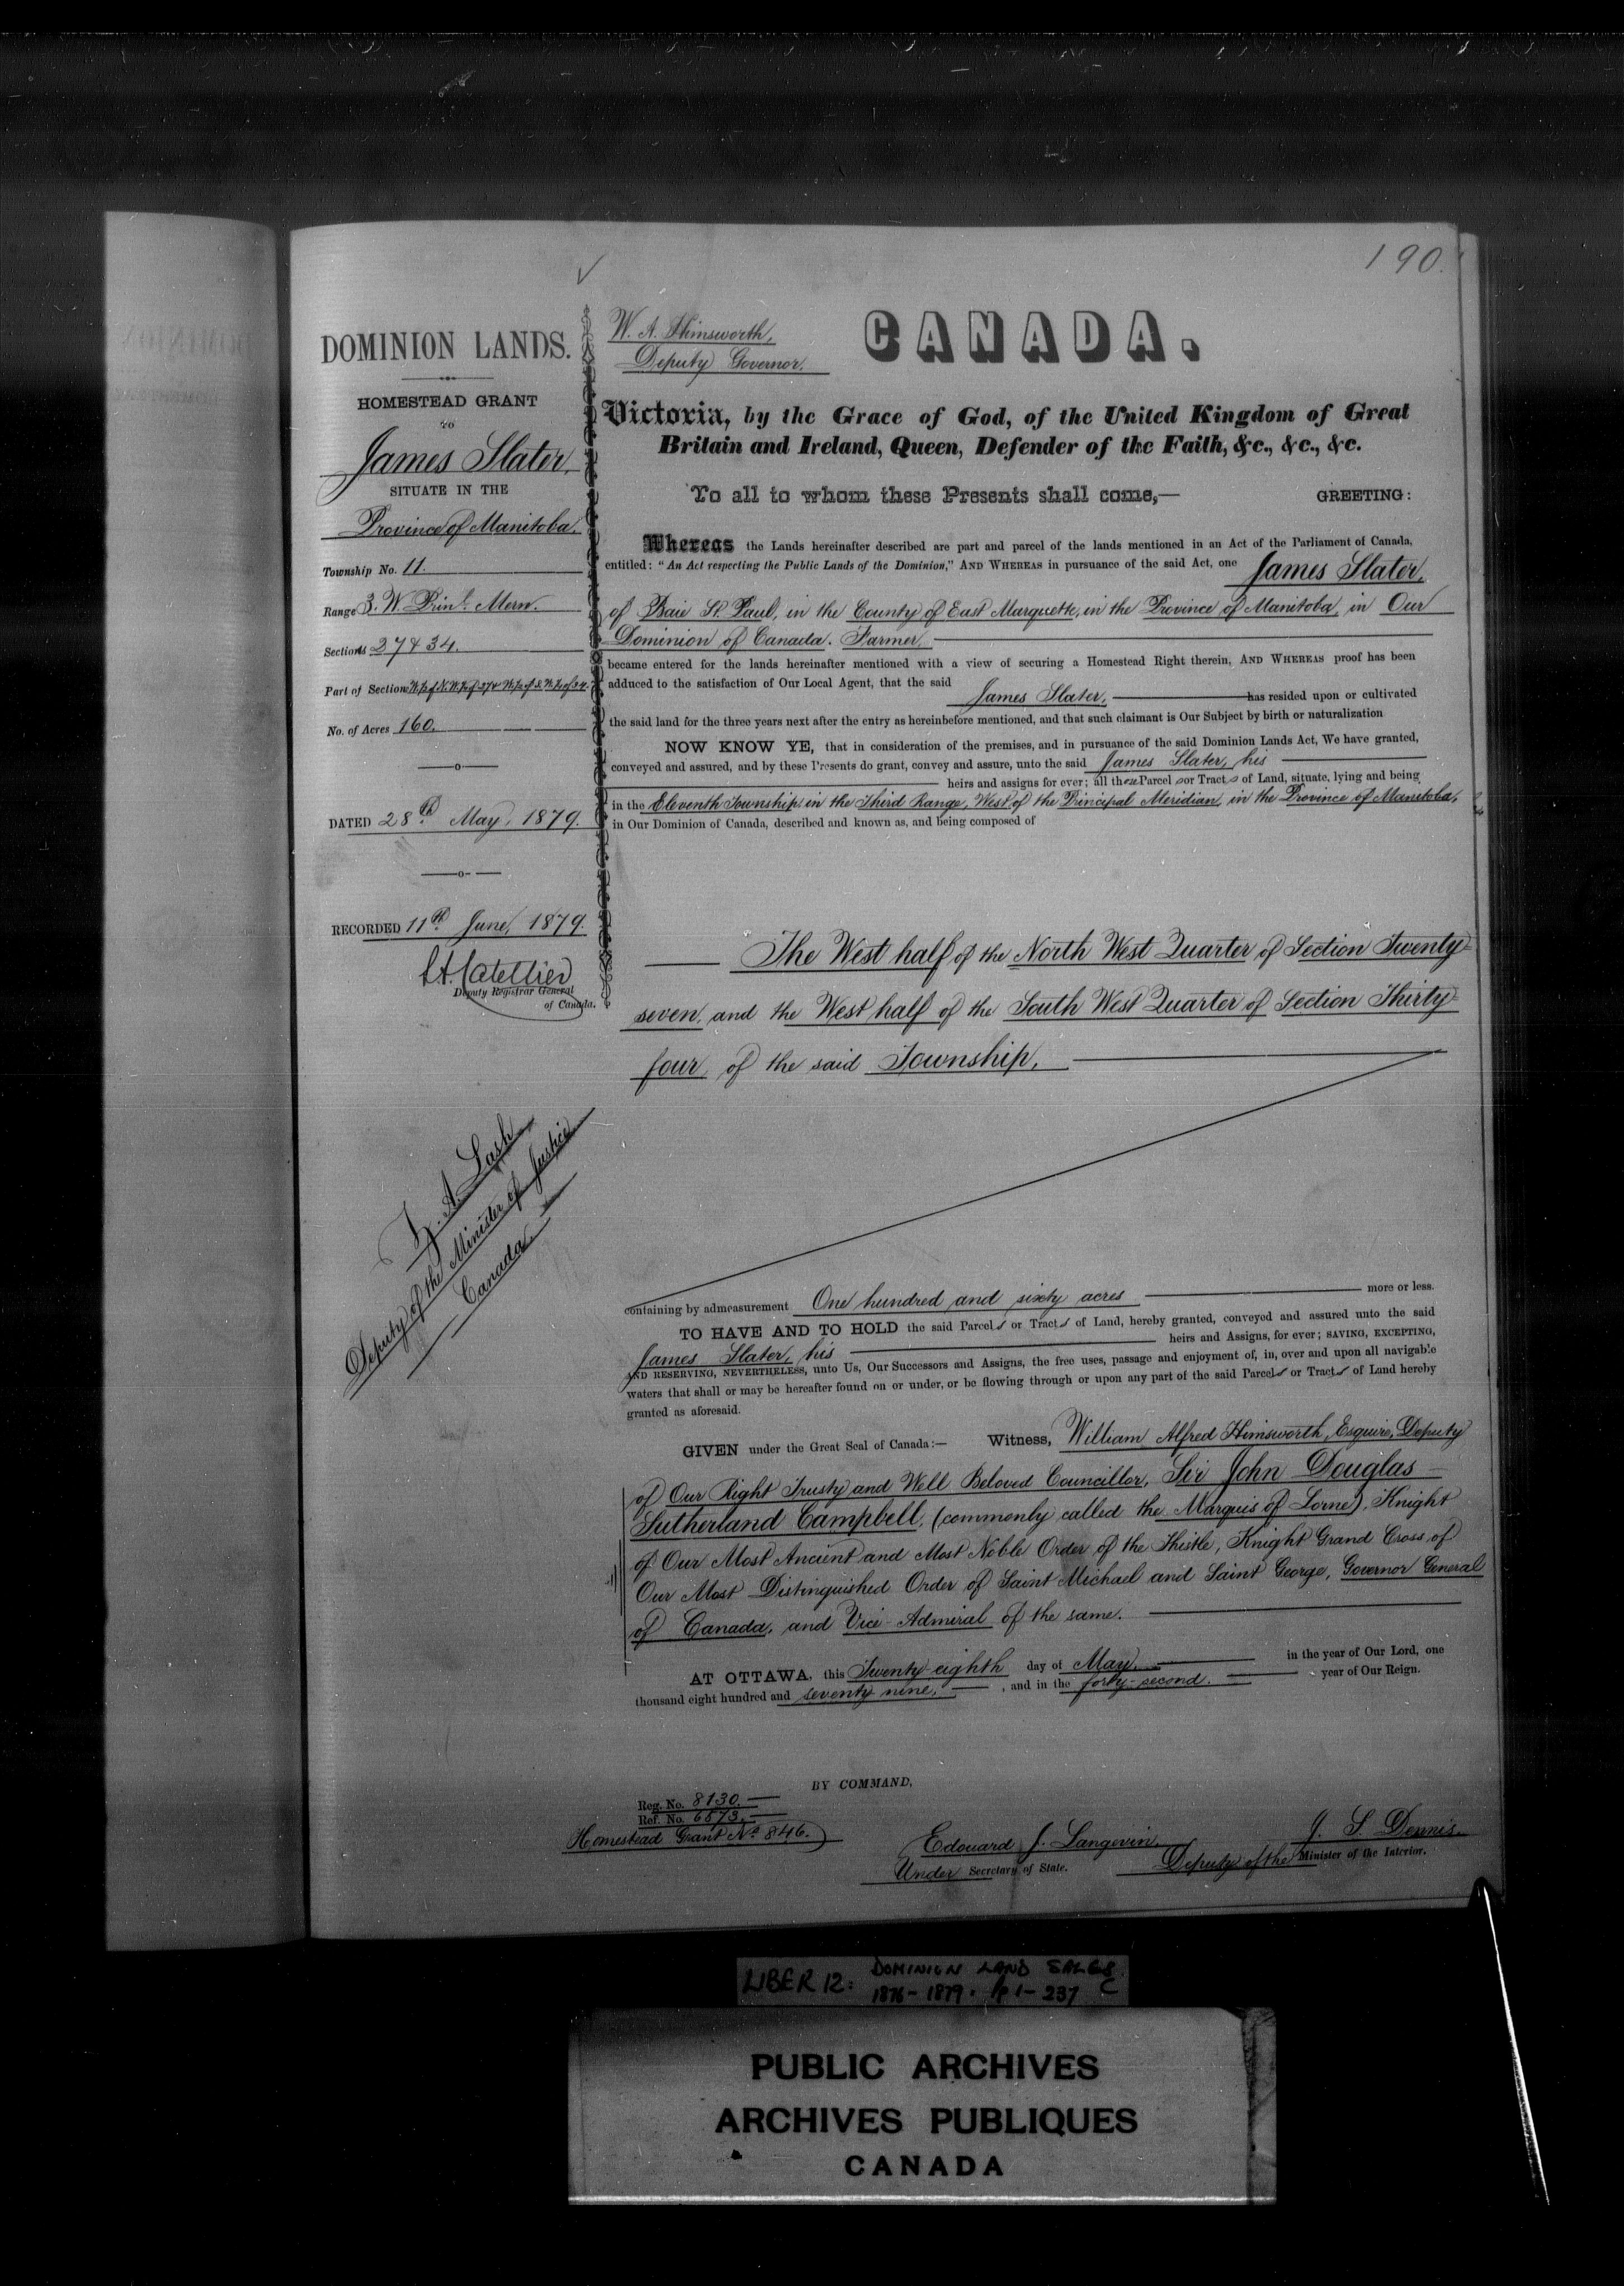 190.
DOMINION LANDS.
HOMESTEAD GRANT
TO
James Slater,
SITUATE IN THE
Province of Manitoba.
Township No. 11.
Range 3. W. Prinl. Mern.
Sections 27 & 34.
Part of Section W.½ of N.W.¼ of 27 & W.½ of S.W.¼ of 34.
No. of Acres 160.
DATED 28th May, 1879.
RECORDED 11th June, 1879.
Deputy Registrar General
of Canada.
Z. A. Lash
Deputy of the Minister of Justice
Canada
W. A. Himsworth,
Deputy Governor.
CANADA.
Victoria, by the Grace of God, of the United Kingdom of Great
Britain and Ireland, Queen, Defender of the Faith, &c., &c., &c.
To all to whom these Presents shall come,— GREETING:
Whereas the Lands hereinafter described are part and parcel of the lands mentioned in an Act of the Parliament of Canada,
entitled: "An Act respecting the Public Lands of the Dominion," AND WHEREAS in pursuance of the said Act, one James Slater,
of Baie St. Paul, in the County of East Marquette, in the Province of Manitoba, in Our
Dominion of Canada. Farmer,
became entered for the lands hereinafter mentioned with a view of securing a Homestead Right therein, AND WHEREAS proof has been
adduced to the satisfaction of Our Local Agent, that the said James Slater, has resided upon or cultivated
the said land for the three years next after the entry as hereinbefore mentioned, and that such claimant is Our Subject by birth or naturalization
NOW KNOW YE, that in consideration of the premises, and in pursuance of the said Dominion Lands Act, We have granted,
conveyed and assured, and by these Presents do grant, convey and assure, unto the said James Slater, his
heirs and assigns for ever; all those Parcels or Tracts of Land, situate, lying and being
in the Eleventh Township, in the Third Range, West of the Principal Meridian, in the Province of Manitoba,
in Our Dominion of Canada, described and known as, and being composed of
The West half of the North West Quarter of Section Twenty-
seven, and the West half of the South West Quarter of Section Thirty-
four, of the said Township,
containing by admeasurement One hundred and sixty acres more or less.
TO HAVE AND TO HOLD the said Parcels or Tracts of Land, hereby granted, conveyed and assured unto the said
James Slater, his heirs and Assigns, for ever; SAVING, EXCEPTING,
AND RESERVING, NEVERTHELESS, unto Us, Our Successors and Assigns, the free uses, passage and enjoyment of, in, over and upon all navigable
waters that shall or may be hereafter found on or under, or be flowing through or upon any part of the said Parcels or Tracts of Land hereby
granted as aforesaid.
GIVEN under the Great Seal of Canada:— Witness, William Alfred Himsworth, Esquire, Deputy
of Our Right Trusty and Well Beloved Councillor, Sir John Douglas
Sutherland Campbell, (commonly called the Marquis of Lorne), Knight
of Our Most Ancient and Most Noble Order of the Thistle, Knight Grand Cross of
Our Most Distinguished Order of Saint Michael and Saint George, Governor General
of Canada, and Vice-Admiral of the same.
AT OTTAWA, this Twenty-eighth day of May, in the year of Our Lord, one
thousand eight hundred and seventy nine, , and in the forty-second. year of Our Reign.
BY COMMAND,
Reg. No. 8130.
Ref. No. 6573.
Homestead Grant No. 846.
Edouard J. Langevin,
Under Secretary of State.
J. S. Dennis.
Deputy of the Minister of the Interior.
LIBER 12: DOMINION LAND SALES
1876-1879. pp 1-237 C
PUBLIC ARCHIVES
ARCHIVES PUBLIQUES
CANADA